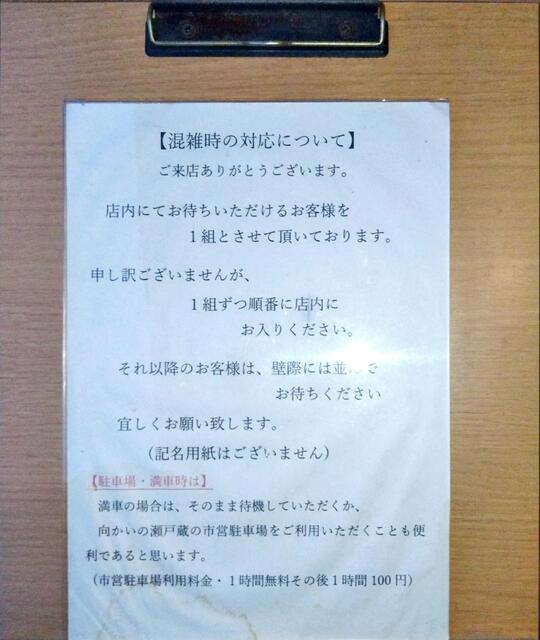 【混雑時の対応について】
ご来店ありがとうございます。
店内にてお待ちいただけるお客様を
１組とさせて頂いております。
申し訳ございませんが、
１組ずつ順番に店内に
お入りください。
それ以降のお客様は、壁際には並んで
お待ちください
宜しくお願い致します。
（記名用紙はございません）
【駐車場・満車時は】
満車の場合は、そのまま待機していただくか、
向かいの瀬戸蔵の市営駐車場をご利用いただくことも便
利であると思います。
（市営駐車場利用料金・１時間無料その後１時間 100 円）